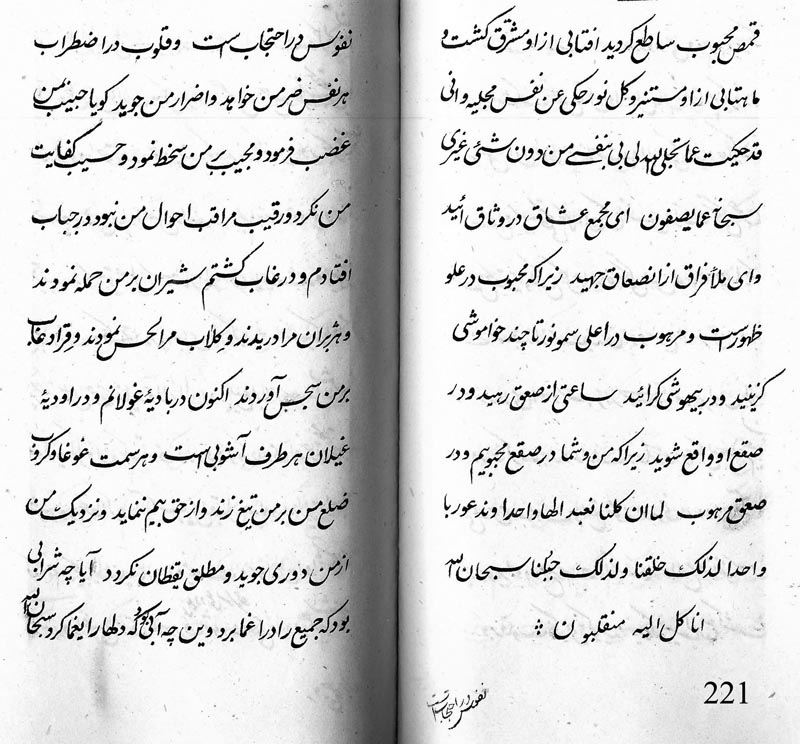 قمص محبوب ساطع کردید افتابی از او مشرق کشت و
ماهتابی از او مستنیر و کل نور حکی عن نفس مجلیه و انی
قد حکیت عما تجلی الله لی بی بنفسی من دون شئی غیری
سبحانه عما یصفون ای مجمع عشاق در وثاق ائید
و ای ملأ فراق از انصعاق جهید زیرا که محبوب در علو
ظهور است و مرهوب در اعلی سمو نور تا چند خواموشی
کزینید و در بیهوشی کرائید ساعتی از صعق رهید و در
صقع او واقع شوید زیرا که من و شما در صقع محبوبیم و در
صعق مرهوب لما ان کلنا نعبد الها واحدا و ندعو ربا
واحدا لذلک خلقنا و لذلک جبلنا سبحان الله
انا کل الیه منقلبون
نفوس در احتجاب است
221
نفوس در احتجاب است و قلوب در اضطراب
هر نفس ضر من خواهد و اضرار من جوید کویا حبیب بمن
غضب فرمود و مجیب بر من سخط نمود و حسیب کفایت
من نکرد و رقیب مراقب احوال من نبود در جباب
افتادم و در غاب کشتم شیران بر من حمله نمودند
و هژبران مرا دریدند و کلاب مرا لحس نمودند و قراد غاب
بر من سجس آوردند اکنون در بادیهٔ غولانم و در اودیهٔ
غیلان هر طرف آشوبی است و هر سمت غوغا و کروب
ضلع من بر من تیغ زند و از حق بیم ننماید و نزدیک من
از من دوری جوید و مطلق یقظان نکردد آیا چه شرابی
بود که جمیع را در اغما برد وین چه آبی بود که دلها را یغما کرد سبحان الله